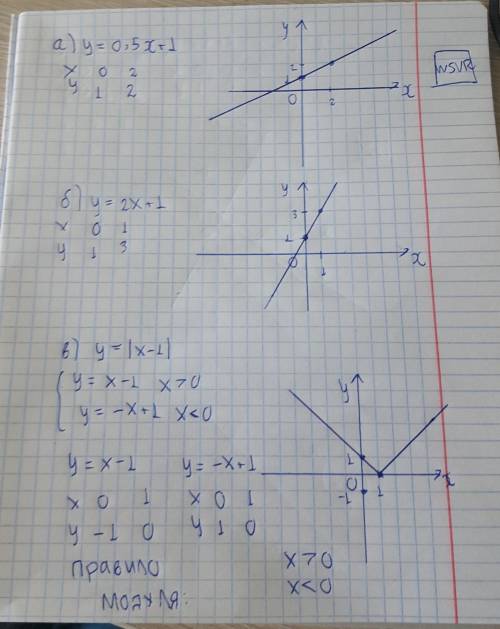 а) y = 0,5x+1
x 0 2
y 1 2
y
2
1
0
2
x
WSVR
б) y = 2x+1
x 0 1
y 1 3
y
3
1
0
1
x
в) y = |x-1|
y = x-1 x>0
y = -x+1 x<0
y = x-1 y = -x+1
x 0 1 x 0 1
y -1 0 y 1 0
y
1
0
-1
1
x
правило
модуля:
x>0
x<0